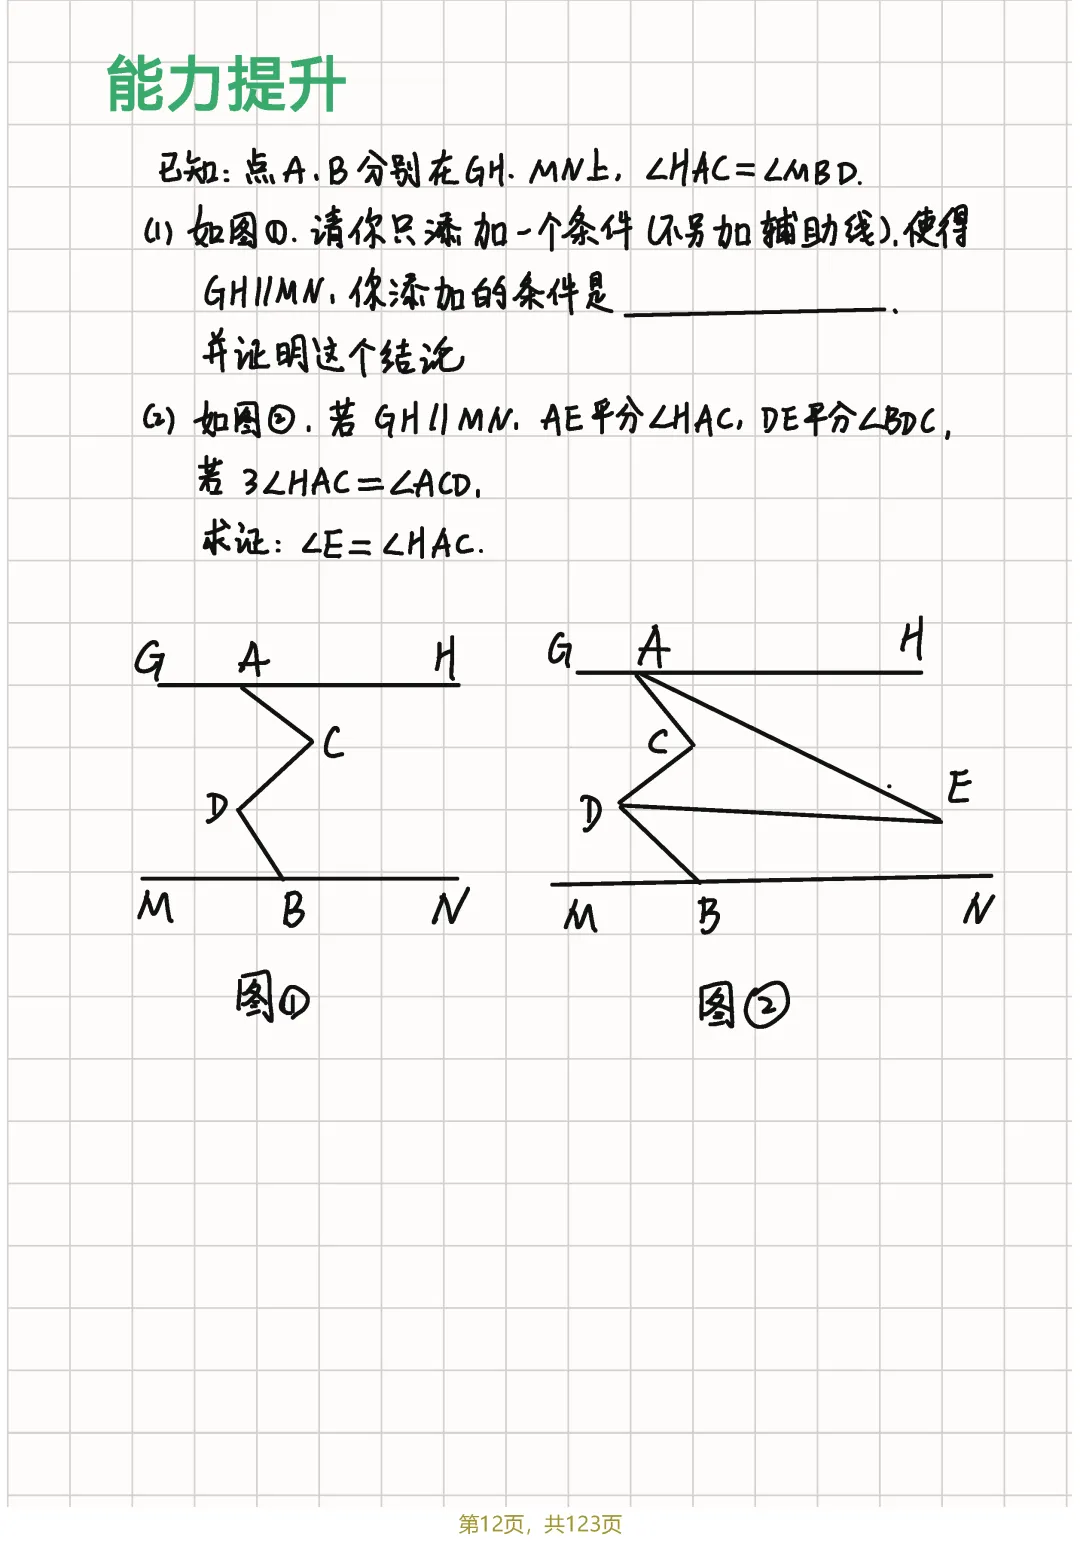 能力提升
已知:点A、B分别在GH、MN上,∠HAC=∠MBD.
(1) 如图①.请你只添加一个条件(不另加辅助线),使得
GH∥MN,你添加的条件是________.
并证明这个结论
(2) 如图②.若 GH∥MN, AE平分∠HAC, DE平分∠BDC,
若 3∠HAC=∠ACD,
求证:∠E=∠HAC.
G A H
C
D
M B N
图①
G A H
C
E
D
M B N
图②
第12页,共123页